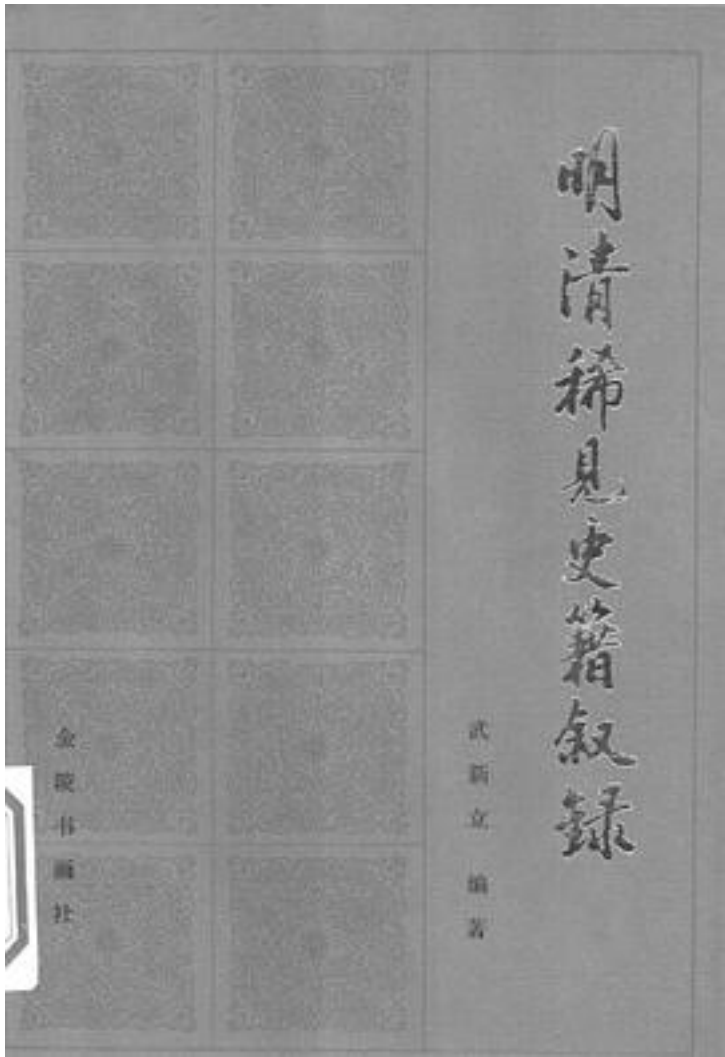 明清稀見史籍叙録
武新立 编著
金陵书画社